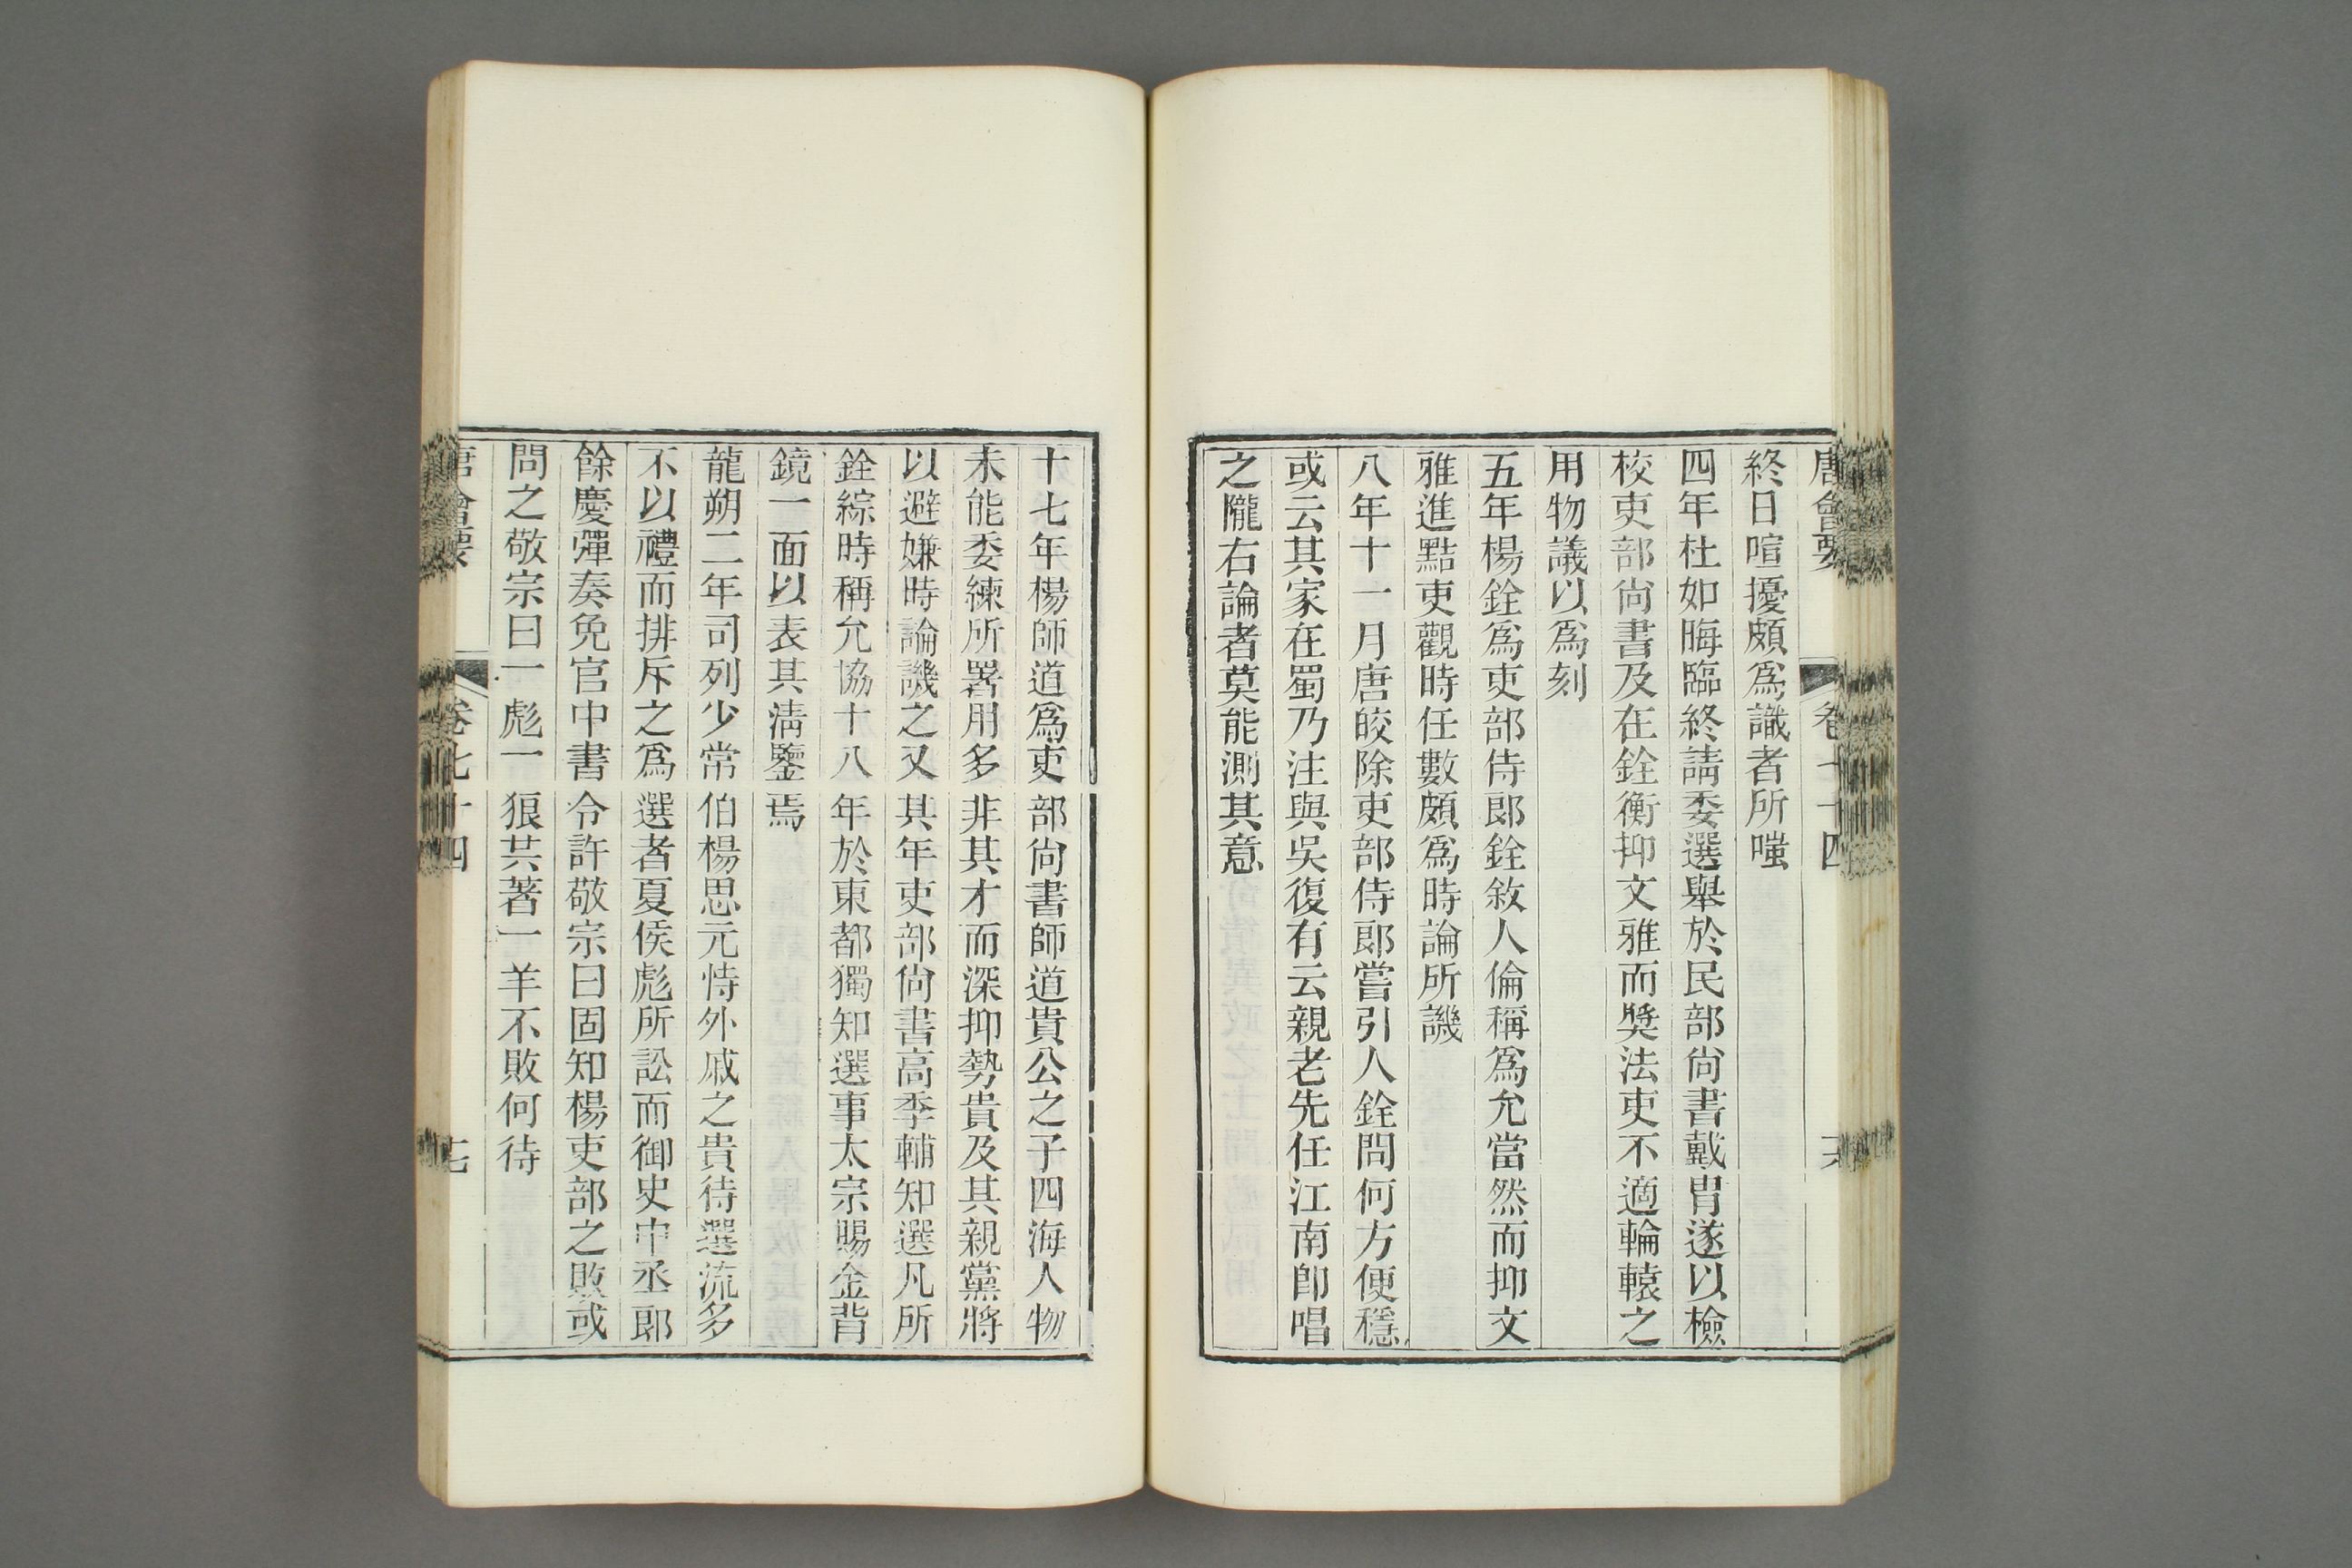 唐會要 卷七十四
終日喧擾頗爲識者所嗤
四年杜如晦臨終請委選舉於民部尙書戴冑遂以檢
校吏部尙書及在銓衡抑文雅而奬法吏不適輪轅之
用物議以爲刻
五年楊銓爲吏部侍郎銓敘人倫稱爲允當然而抑文
雅進黠吏觀時任數頗爲時論所譏
八年十一月唐皎除吏部侍郎嘗引人銓問何方便穩
或云其家在蜀乃注與吳復有云親老先任江南卽唱
之隴右論者莫能測其意
十七年楊師道爲吏部尙書師道貴公之子四海人物
未能委練所署用多非其才而深抑勢貴及其親黨將
以避嫌時論譏之又其年吏部尙書高季輔知選凡所
銓綜時稱允協十八年於東都獨知選事太宗賜金背
鏡一面以表其淸鑒焉
龍朔二年司列少常伯楊思元恃外戚之貴待選流多
不以禮而排斥之爲選者夏侯彪所訟而御史中丞郎
餘慶彈奏免官中書令許敬宗曰固知楊吏部之敗或
問之敬宗曰一彪一狼共著一羊不敗何待
唐會要 卷七十四